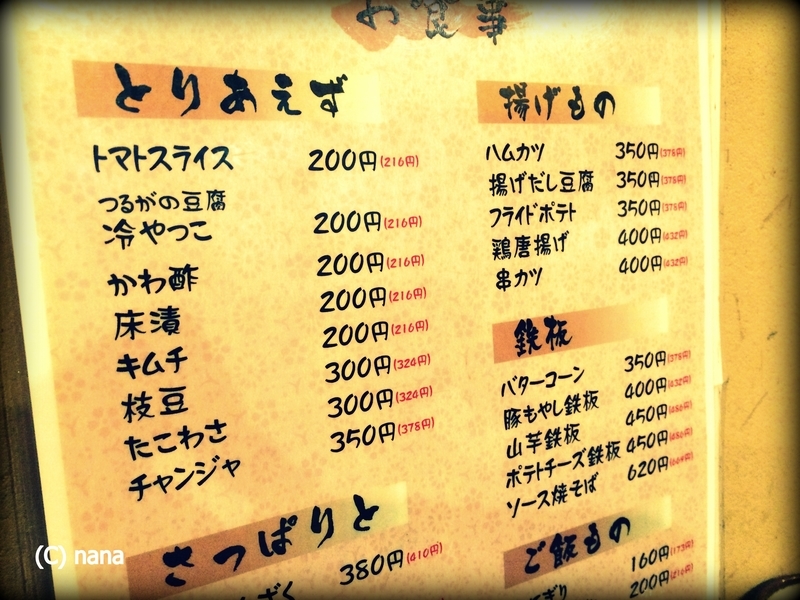 お食事
とりあえず
トマトスライス 200円(216円)
つるがの豆腐
冷やっこ 200円(216円)
かわ酢 200円(216円)
床漬 200円(216円)
キムチ 200円(216円)
枝豆 300円(324円)
たこわさ 300円(324円)
チャンジャ 350円(378円)
さっぱりと
380円(410円)
揚げもの
ハムカツ 350円(378円)
揚げだし豆腐 350円(378円)
フライドポテト 350円(378円)
鶏唐揚げ 400円(432円)
串カツ 400円(432円)
鉄板
バターコーン 350円(378円)
豚もやし鉄板 400円(432円)
山芋鉄板 450円(486円)
ポテトチーズ鉄板 450円(486円)
ソース焼そば 620円
ご飯もの
160円
200円(216円)
(C) nana